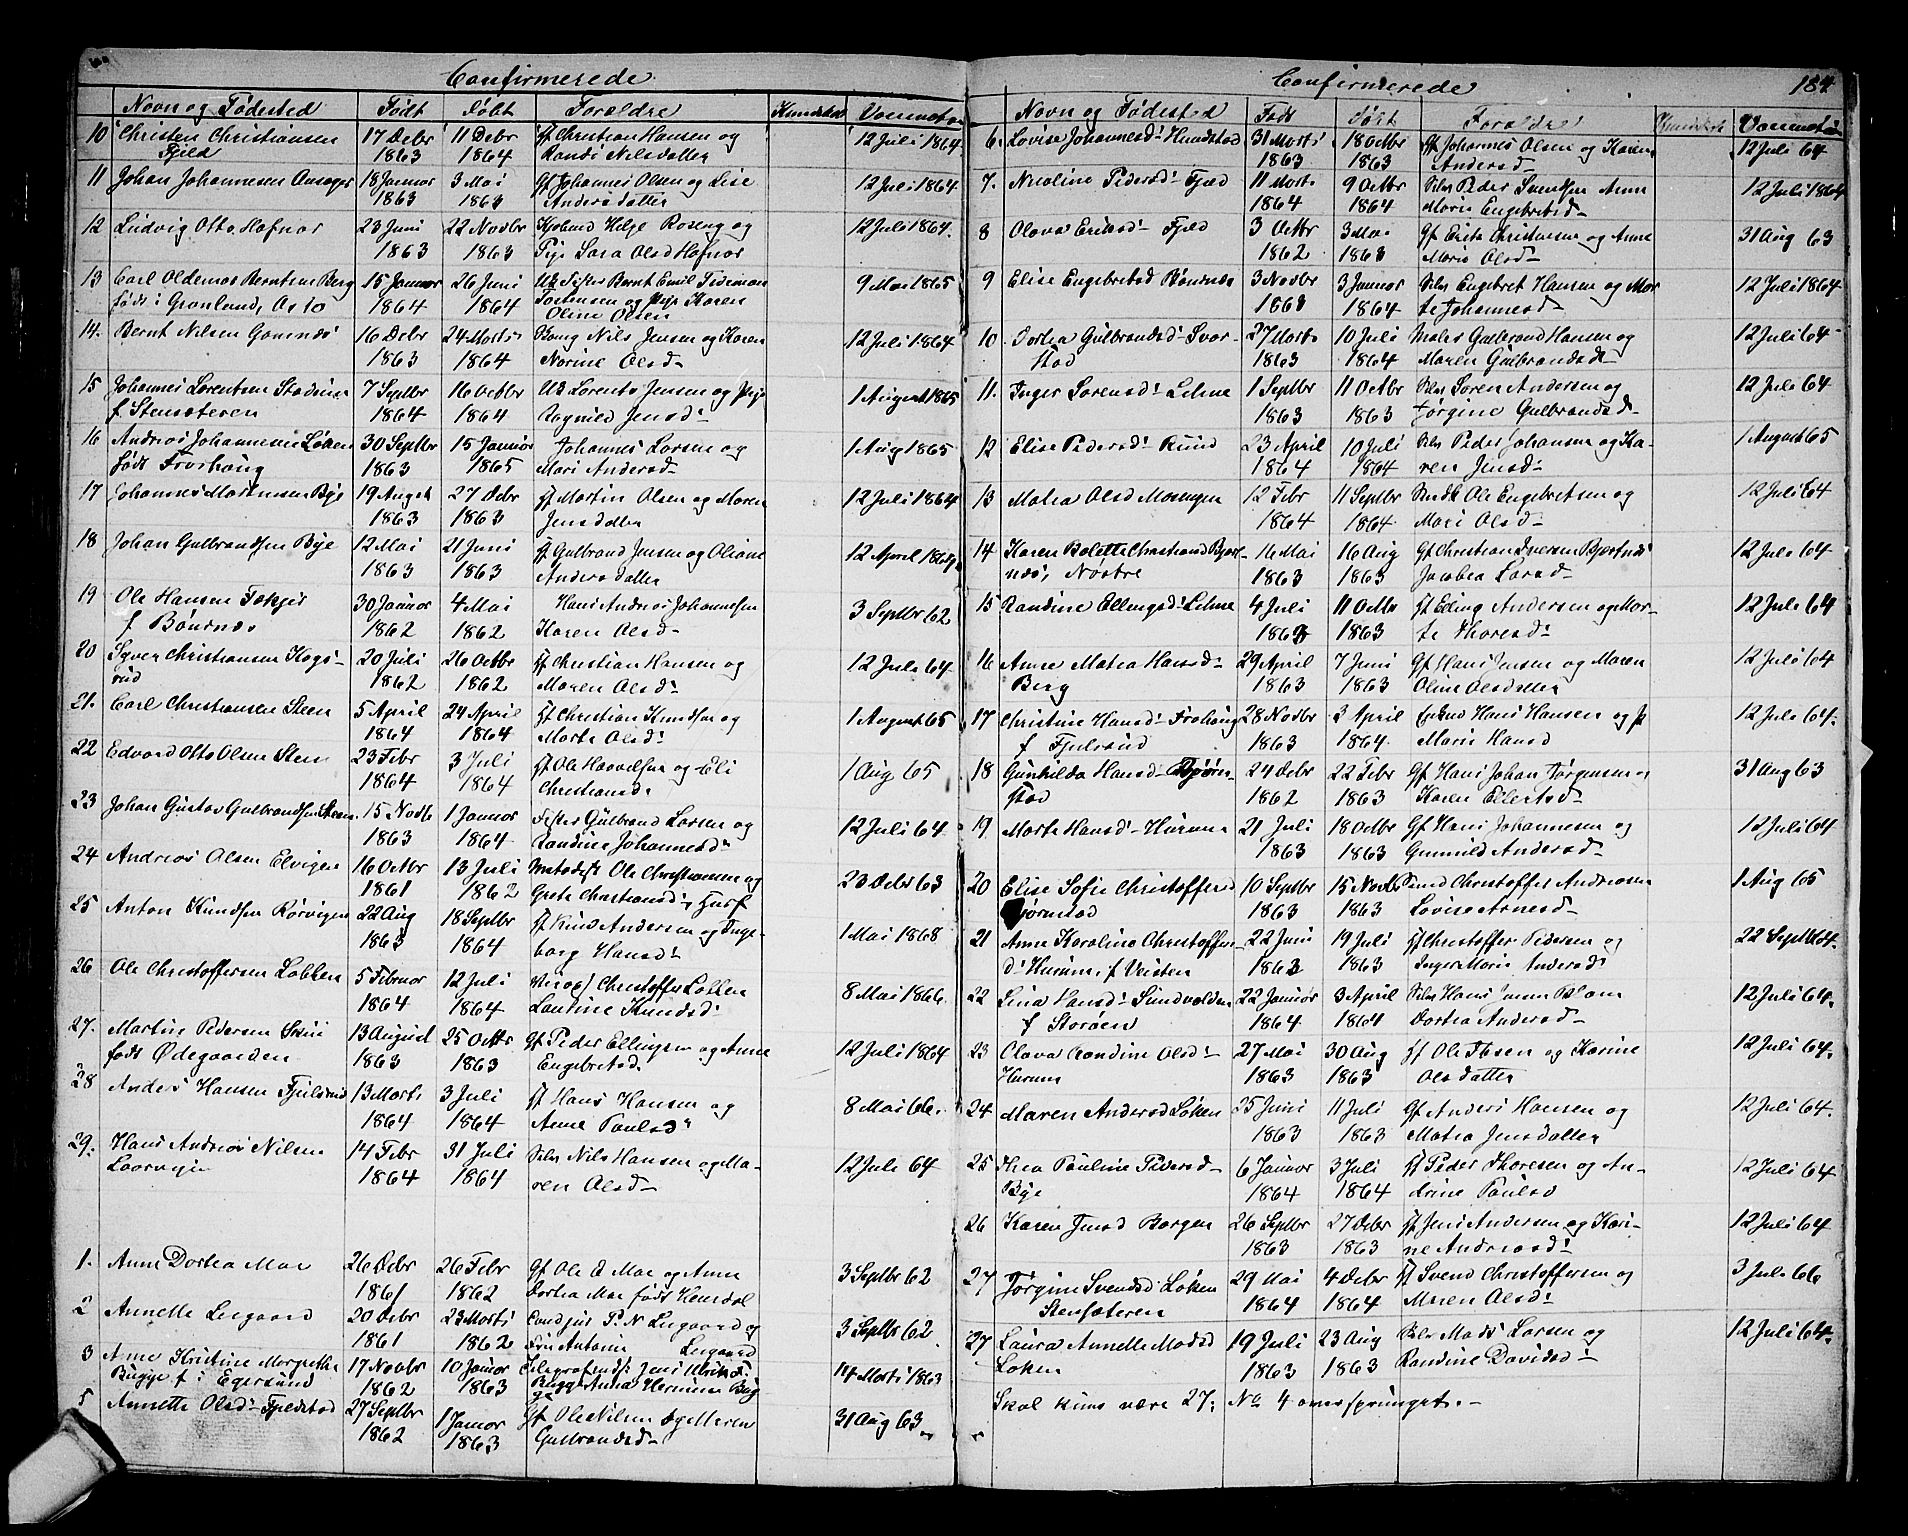 Confirmerede
Navn og Fødested Født Døbt Forældre Kundskab Vaccinat
10 Christen Christiansen 17 Debr 11 Debr Gf Christian Hansen og 12 Juli 1864
Fjeld 1863 1864 Randi Nilsdatter
11 Johan Johannesen 18 Januar 3 Mai Gf Johannes Olsen og Lise 12 Juli 1864
1863 1863 Andersdatter
12 Ludvig Otto Hafnor 23 Juni 22 Novbr Helge Roseng og 12 Juli 1864.
1863 1863 Pige Sara Olsd Hafnor
13 Carl Oldemar Berntsen Berg 15 Januar 26 Juni Bernt Emil Tideman 9 Mai 1865
født i Grønland, Aslo 1864 1864 Torstensen og Pige Karen
Oline Olsen
14. Bernt Nilsen Gomnæs 16 Debr 24 Marts Nils Jensen og Karen 12 Juli 1864
1863 1864 Norine Olsd
15 Johannes Lorentsen 7 Septbr 16 Octbr Uk Lorents Jensen og Pige 1 August 1865
f Stensæteren 1864 1864 Ragnild Jensd:
16 Andreas Johannesen Løken 30 Septbr 15 Januar Johannes Larsen og 1 Aug 1865
født Frorhaug 1863 1865 Mari Andersd
17 Johannes Martinsen Bye 19 August 27 Debr Gf Martin Olsen og Maren 12 Juli 1864
1863 1863 Jensdatter
18 Johan Gulbrandsen Bye 12 Mai 21 Juni Gf Gulbrand Jensen og Oliane 12 April 1864
1863 1863 Andersdatter
19 Ole Hansen 30 Januar 4 Mai Hans Andreas Johannesen 3 Septbr 62
f Bønsnæs 1862 1862 Karen Olsd
20 Syver Christiansen Kogs- 20 Juli 26 Octbr Gf Christian Hansen og 12 Juli 64
rud 1862 1862 Maren Olsd:
21. Carl Christiansen Steen 5 April 24 April Gf Christian Knudsen og 1 August 65
1864 1864 Marte Olsd:
22 Edvard Otto Olsen Steen 23 Febr 3 Juli Gf Ole Haavelsen og Eli 1 Aug 65
1864 1864 Christiansd:
23 Johan Gustav Gulbrandsen Steen 15 Novb 1 Januar Fester Gulbrand Larsen og 12 Juli 64
1863 1864 Randine Johannesd:
24 Andreas Olsen Elvigen 16 Octbr 13 Juli Ole Christiansen og 23 Debr 63
1861 1862 Grete Christiansd:
25 Anton Knudsen Rørvigen 22 Aug 18 Septbr Gf Knud Andersen og Inge- 1 Mai 1868
1863 1864 borg Hansd:
26 Ole Christoffersen Løkken 5 Februar 12 Juli Christoffer Løkken 8 Mai 1866.
1864 1864 Laurine Knudsd:
27. Martin Pedersen 13 August 25 Octbr Gf Peder Ellingsen og Anne 12 Juli 1864
født Ødegaarden 1863 1863 Engebretsd.
28 Anders Hansen Fjulsrud 13 Marts 3 Juli Gf Hans Hansen og 8 Mai 66.
1864 1864 Anne Paulsd:
29. Hans Andreas Nilsen 14 Febr 31 Juli Selv Nils Hansen og Ma- 12 Juli 64
1864 1864 ren Olsd
1. Anne Dortea Moe 26 Debr 26 Febr Gf Ole E Moe og Anne 3 Septbr 62
1861 1862 Dortea Moe født Hemdal
2 Annette Leegaard 20 Debr 23 Marts Cand jur P. N. Leegaard og 3 Septbr 62
1861 1862 Fru Antonie Leegaard
3 Anne Kristine Margrethe 17 Novbr 10 Januar Jens 14 Marts 1863
Bugge f i Egersund 1862 1863 Bugge Anna Hermine Bug
ge
5 Annette Olsd: Fjeldstad 27 Septbr 1 Januar Gf Ole Nilsen og Maren 31 Aug 63
1862 1863 Gulbrandsd
Confirmerede 184
Navn og Fødested Født Døbt Forældre Kundskab Vaccinat
6. Lovise Johannesd: Hundstad 31 Marts 18 Octbr Gf Johannes Olsen og Karen 12 Juli 64
1863 1863 Andersd
7. Nicoline Pedersd: Fjeld 11 Marts 9 Octbr Selv Peder Svendsen Anne 12 Juli 1864
1864 1864 Marie Engebretsd
8 Olava Eriksd: Fjeld 3 Octbr 3 Mai Gf Erik Christiansen og Anne 31 Aug 63
1862 1863 Marie Olsd
9 Elise Engebretsd Bønsnæs 3 Novbr 3 Januar Selv Engebret Hansen og Mar 12 Juli 1864
1863 1864 te Johannesd:
10. Dortea Gulbrandsd: Svar- 27 Marts 10 Juli Gulbrand Hansen og 12 Juli 64
stad 1863 1864 Maren Gulbrandsd:
11. Inger Sørensd: Lehne 1 Septbr 11 Octbr Selv Søren Andersen og 12 Juli 64
1863 1863 Jørgine Gulbrandsd
12 Elise Pedersd: Ruud 23 April 10 Juli Selv Peder Johansen og Ka- 1 August 65
1864 1864 ren Jensd:
13 Matea Olsd Mosengen 12 Febr 11 Septbr Ole Engebretsen og 12 Juli 64
1864 1864. Mari Olsd
14 Karen Bolette Christiansd Bjert- 16 Mai 16 Aug Gf Christian Iversen Bjertnæs 12 Juli 64
næs, Nøstre 1863 1863 Jacobea Larsd
15 Randine Ellingsd: Lehne 4 Juli 11 Octbr Gf Elling Andersen og Mar- 12 Juli 64
1863 1863 te Thoresd:
16 Anne Matea Hansd: 29 April 7 Juni Gf Hans Jensen og Maren 12 Juli 64
Berg 1863 1863 Oline Olsdatter
17 Christine Hansd: Frohaug 28 Novbr 3 April Hans Hansen og 12 Juli 64.
f Fjulsrud 1863 1864. Marie Hansd
18 Gunhilda Hansd: Bjørn- 24 Debr 22 Febr Gf Hans Johan Jørgensen og 31 Aug 63
stad 1862 1863 Karen Ellertsd
19. Marte Hansd: Hurum 21 Juli 18 Octbr Gf Hans Johannesen og 12 Juli 64
1863 1863 Gunnild Andersd
20 Elise Sofie Christoffersd 10 Septbr 15 Novbr Christoffer Andreasen 1 Aug 65
Bjørnstad 1863 1863 Lovise Arnesd
21 Anne Karoline Christoffers- 22 Juni 19 Juli Gf Christoffer Pedersen og 22 Sept 64.
d: Hurum, f Veisten 1863 1863 Inger Marie Andersd:
22 Lina Hansd: Sundvolden 22 Januar 3 April Selv Hans Jensen Blom 12 Juli 64.
f Storøen 1864 1864 Dortea Andersd:
23 Olava Randine Olsd: 27 Mai 30 Aug Gf Ole Ibsen og Karine 12 Juli 64.
Hurum 1863 1863 Olsdatter
24 Maren Andersd Løken 25 Juni 11 Juli Gf Anders Hansen og 12 Juli 64.
1863 1863 Matea Jensdatter
25 Thea Pauline Pedersd: 6 Januar 3 Juli Gf Peder Thoresen og An- 12 Juli 64
Bye 1864 1864 drine Paulsd
26 Karen Jensd Borgen 26 Septbr 27 Debr Gf Jens Andersen og Kari- 12 Juli 64
1863 1863 ne Andreasd:
27 Jørgine Svendsd: Løken 29 Mai 4 Debr Gf Svend Christoffersen og 3 Juli 66
Stensæteren 1864 1864 Maren Olsd:
27 Laura Annette Madsd 19 Juli 23 Aug Selv Mads Larsen og 12 Juli 64.
Løken 1863 1863 Randine Davidsd:
Skal kuns være 27; No 4 oversprunget.